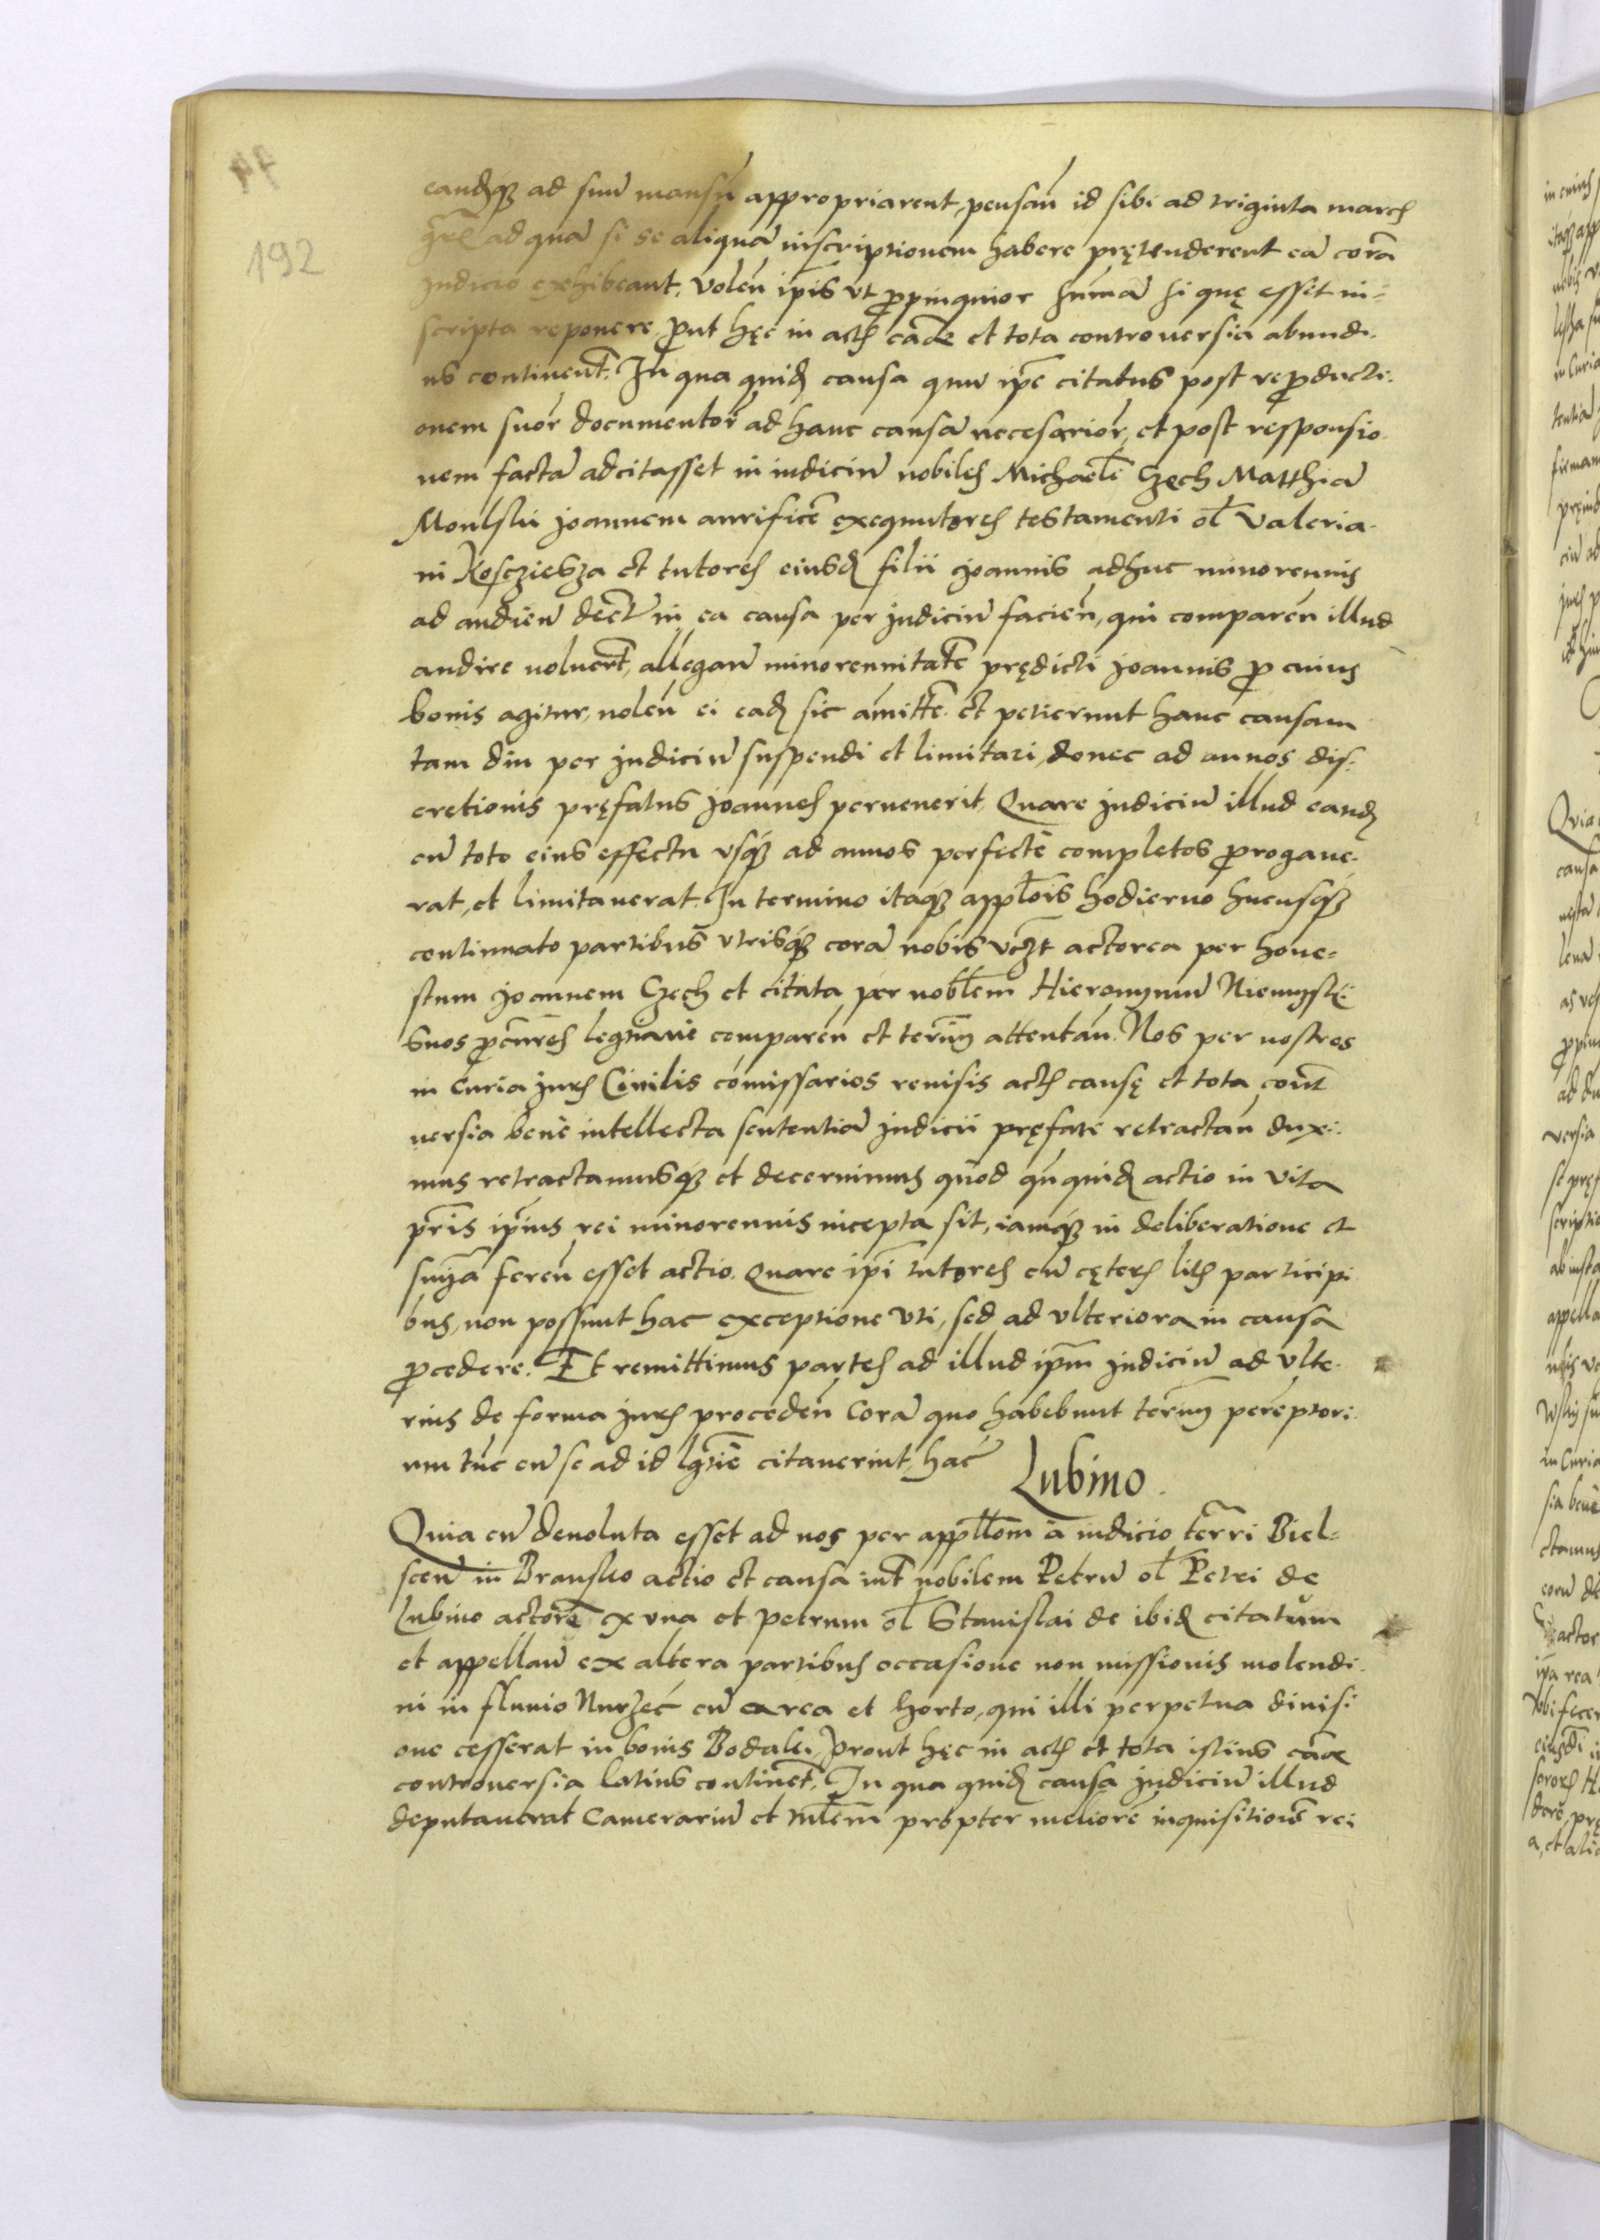 192
eandẽq3 ad suũ mansũ appropriarent, pensañ id sibi ad triginta march
ad quã si se aliquã inscriptionem habere prętenderent eã corã
Judicio exhibeant, volen̄ ip̄is vt ꝓpinquior sum̄ã si quę esset in=
scripta reponere ꝓut hęc in acth cãde et tota controuersia abundi.
us continent͂. In qua quidẽ causa quũ ip̄e citatus post reꝓducti.
onem suor̃ documentor̃ ad hanc causã necesarior̃, et post responsio.
nem factã adcitasset in iudiciũ nobiles Michaelẽ Czech Matthiã
Joannem aurificẽ exequutores testamenti ol̃ Valeria.
ni Koscziesza et tutores eiusdẽ filii Joannis adhuc minorennis
ad audien̄ decr̃ in ea causa per Judiciũ facien̄, qui comparen̄ illud
audire noluer̃t, allegan̄ minorennitatẽ prędicti Joannis ꝓ cuius
bonis agitur, nolen̄ ei eadẽ sic am̄ittr̃e. et petierunt hanc causam
tam diu per Judiciũ suspendi et limitari, donec ad annos dis=
cretionis pręfatus Joannes peruenerit. Quare Judiciũ illud eandẽ
cũ toto eius effectu vsq3 ad annos perfectè completos ꝓrogaue.
rat, et limitauerat. In termino itaq3 appl̃ois hodierno hucusq3
continuato partibus vtrisq3 corã nobis vcz̃t actorea per hone=
stum Joannem Czech et citata per nobl̃em Hieronymũ
suos ꝓcur̃es legittime comparen̄ et ter̃m̃ attentan̄. Nos per nostros
in Curia Jurẽ Ciuilis com̄issarios reuisis acth causę et tota cont̃
uersia benè intellecta sententiã Judicii pręfati retractan̄ duxi.
mus retractamusq3 et decernimus quòd quũquidẽ actio in vita
pr̃is ip̄ius rei minorennis incepta sit, iamq3 in deliberatione et
sn̄iã feren̄ esset actio. Quare ip̄i tutores cũ cęterẽ litẽ participi
bus, non possunt hac exceptione vti, sed ad vlteriora in causa
ꝓcedere. Et remittimus partes ad illud ip̄m Judiciũ ad vlte.
rius de forma Jurẽ proceden̄ Corã quo habebunt ter̃m̃ peremptori.
um tũc cũ se ad id lgtiẽ citauerint, hac̃
Lubino.
Quia cũ deuoluta esset ad nos per appl̃l̃om̄ à iudicio ter̃ri Biel=
scen̄ in Bransko actio et causa int̃ nobilem Petrũ ol̃ Petri de
Lubino actorẽ ex vna et Petrum ol̃ Stanislai de ibidẽ citatum
et appellan̄ ex altera partibus occasione non missionis molendi.
ni in fluuio Nurzec cũ area et horto, qui illi perpetua diuisi
one cesserat in bonis Bodaki, Prout hęc in acth et tota istius cãe
controuersia latius continet͂. In qua quidẽ causa Judiciũ illud
deputauerat Camerariũ et Ml̃em̄ propter meliorẽ inquisitionẽ rei